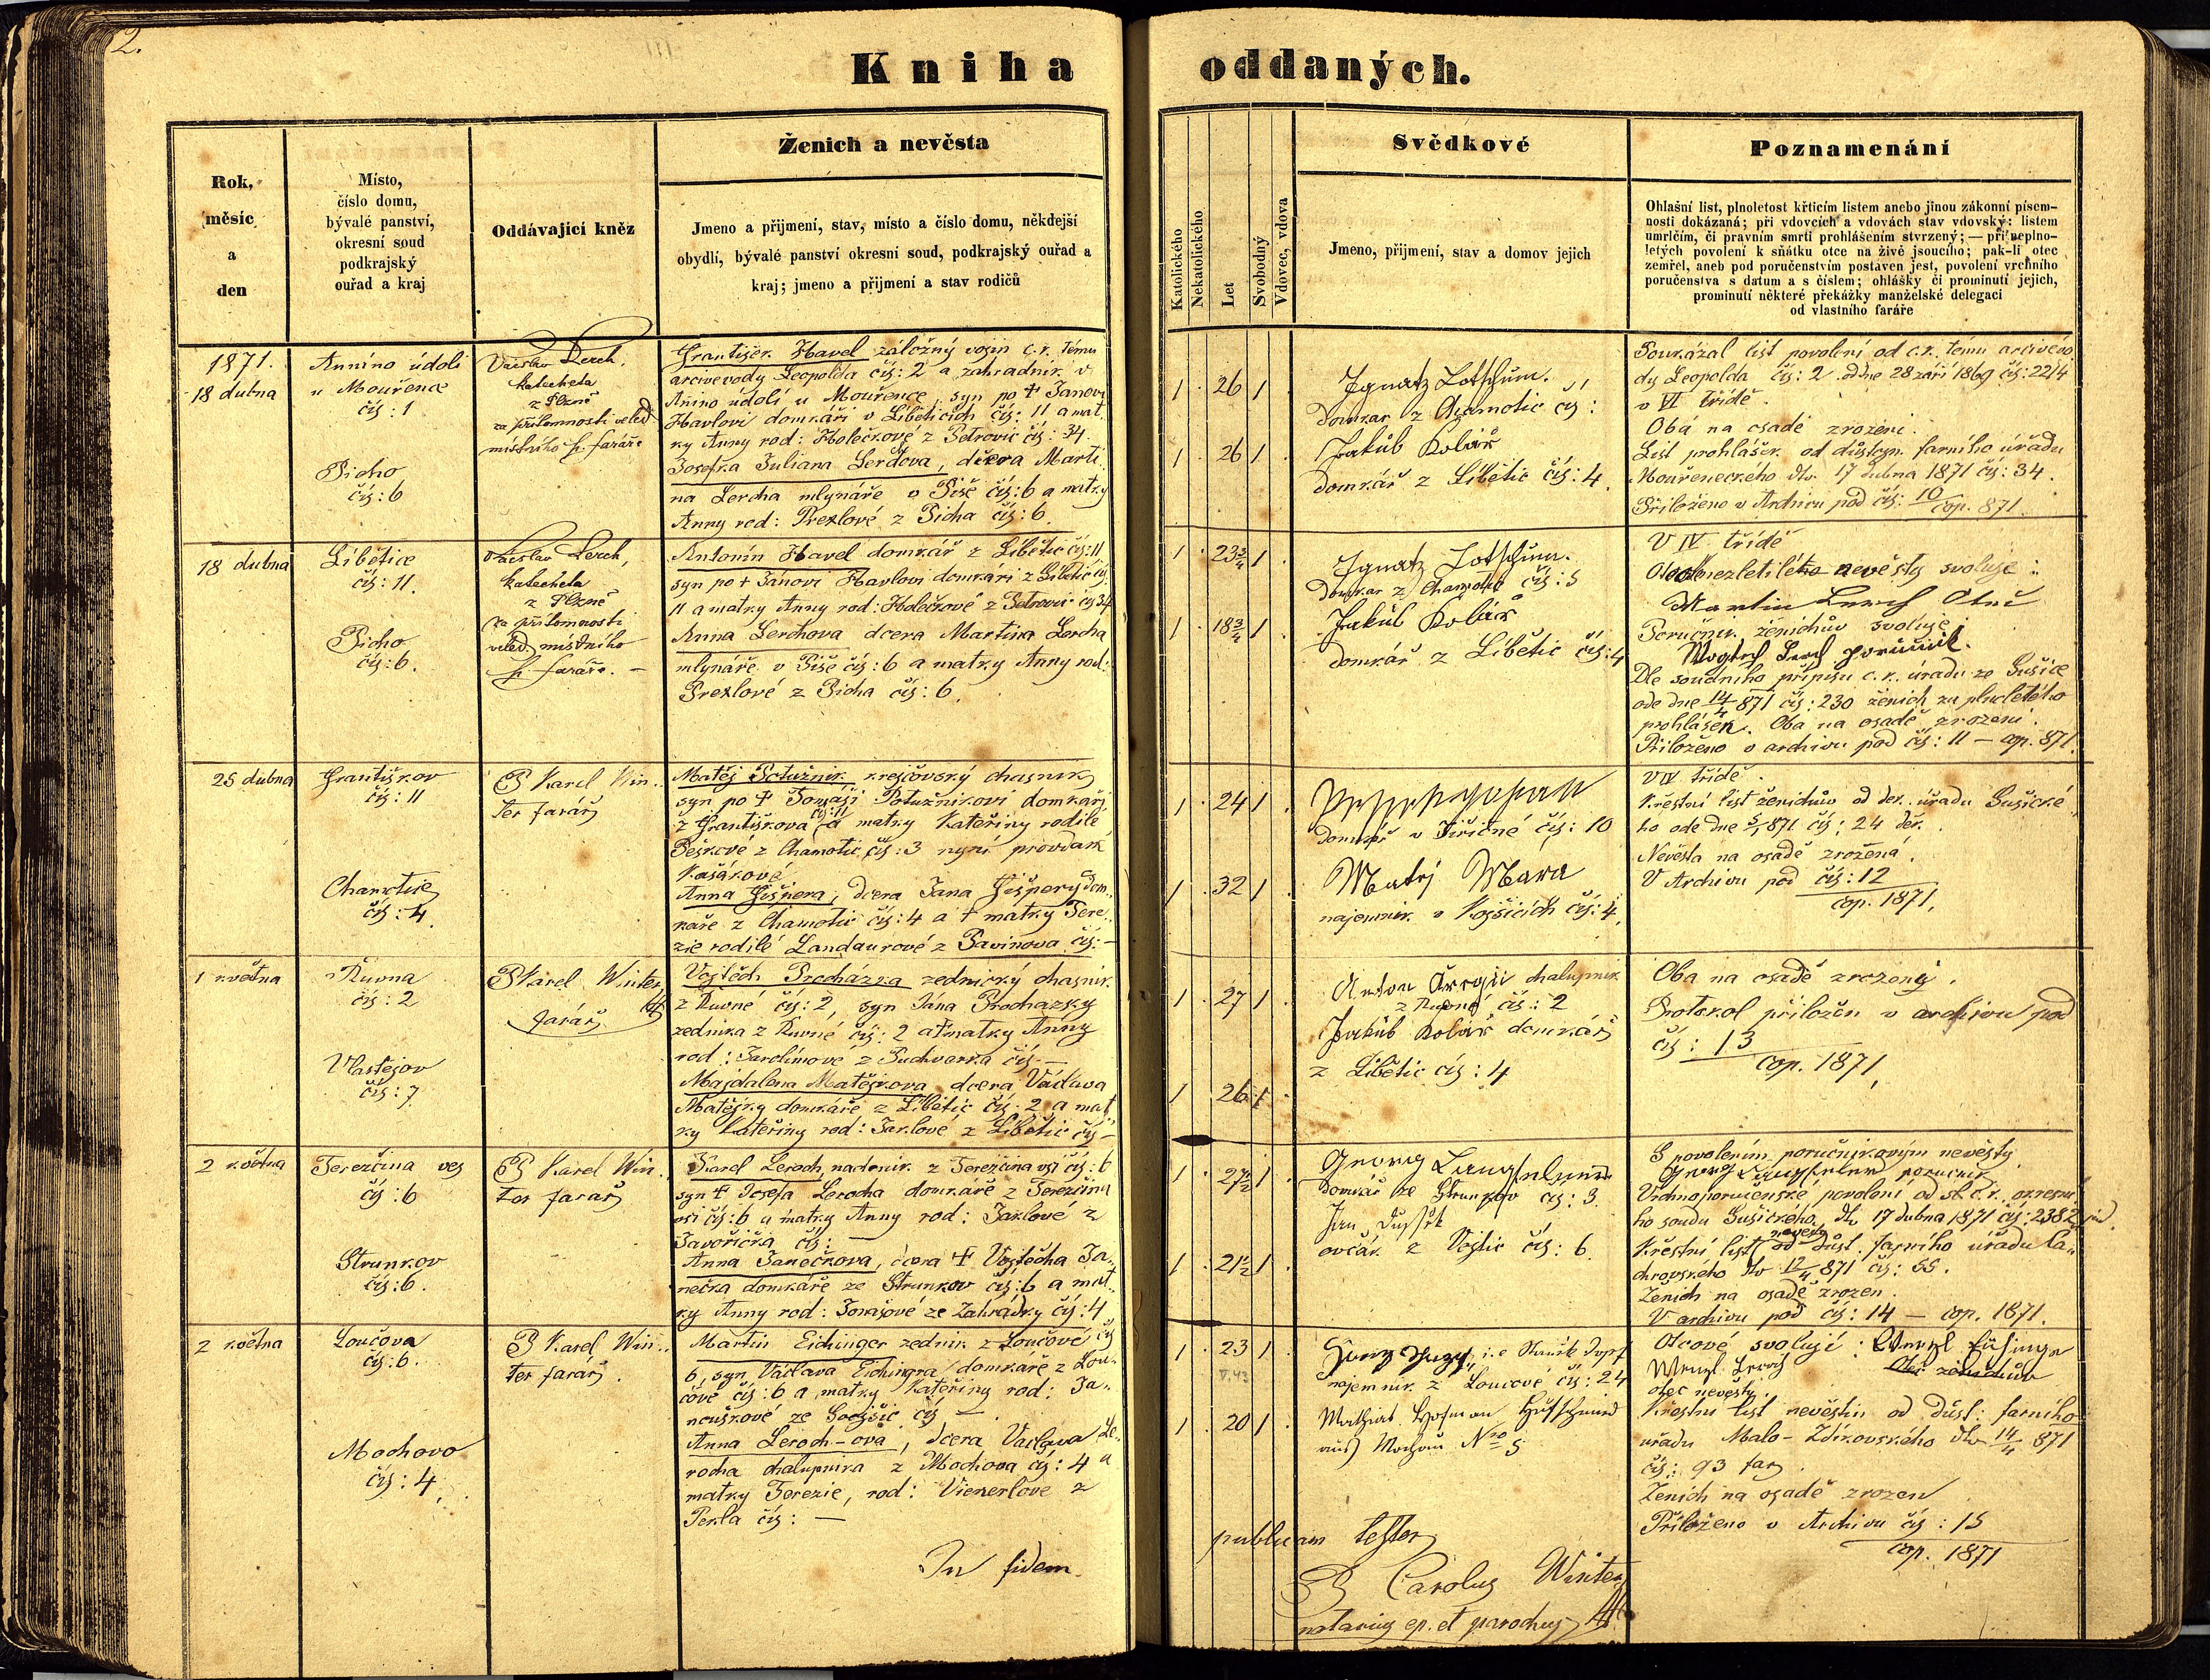 2.
Kniha oddaných.
Rok,
měsíc
a
den
Místo,
číslo domu,
bývalé panství,
okresní soud
podkrajský
ouřad a kraj
Oddávající kněz
Ženich a nevěsta
Jmeno a přijmení, stav, místo a číslo domu, někdejší
obydlí, bývalé panství okresní soud, podkrajský ouřad a
kraj; jmeno a přijmení a stav rodičů
Katolického
Nekatolického
Let
Svobodný
Vdovec, vdova
Svědkové
Jmeno, přijmení, stav a domov jejich
Poznamenání
Ohlašní list, plnoletost křticím listem anebo jinou zákonní písem-
nosti dokázaná; při vdovcích a vdovách stav vdovský: listem
umrlčím, či pravním smrti prohlášením stvrzený; — při neplno-
letých povolení k sňátku otce na živě jsoucího; pak-li otec
zemřel, aneb pod poručenstvím postaven jest, povolení vrchního
poručenstva s datum a s číslem; ohlášky či prominutí jejich,
prominutí některé překážky manželské delegací
od vlastního faráře
1871.
18 dubna
Annino údolí
u Mouřence
čís: 1
Picho
čís: 6
Václav Lerch,
katecheta
z Plzně
za přítomnosti veled.
místního p. faráře
František Havel záložný vojín c. k. těmu
arcivevody Leopolda čís: 2 a zahradník v
Anino údolí u Mouřence, syn po † Janovi
Havlovi domkáři v Liběticích čís: 11 a mat
ky Anny rod: Holečkové z Petrovic čís: 34.
Josefka Juliana Lerchova, dcera Marti
na Lercha mlynáře v Piše čís: 6 a matky
Anny rod: Prexlové z Picha čís: 6.
1 26 1
1 26 1
Ignatz Lotschüm.
domkar z Chamotic čís:
Jakub Kolář
domkář z Libětic čís: 4.
Poukázal list povolení od c. k. těmu arcivévo
dy Leopolda čís: 2 od dne 28 září 1869 čís: 2214
v VI třídě.
Obá na osadě zrozeni.
List prohlášek od důstojn. farního úřadu
Mouřeneckého dto 17 dubna 1871 čís: 34.
Přiloženo v Archivu pod čís: 10/cop. 871.
18 dubna
Libětice
čís: 11.
Picho
čís: 6.
Václav Lerch,
katecheta
z Plzně
za přítomnosti
veled. místního
p. faráře. —
Antonín Havel domkář z Libětic čís: 11
syn po † Janovi Havlovi domkáři z Libětic čís
11 a matky Anny rod: Holečkové z Petrovic čís 34
Anna Lerchova dcera Martina Lercha
mlynáře v Piše čís: 6 a matky Anny rod:
Prexlové z Picha čís: 6.
1 23 3/4 1
1 18 3/4 1
Ignatz Lotschüm.
Domkar z Chamotic čís: 5
Jakub Kolář
domkář z Libětic čís: 4
V IV třídě
nevěsty svoluje:
Martin Lerch Otec
Poručník ženichův svoluje
Vogtech Lerch poručnik.
Dle soudního přípisu c. k. úřadu ze Sušice
ode dne 14/4 871 čís: 230 ženich za plnoletého
prohlášen. Oba na osadě zrozeni.
Přiloženo v archivu pod čís: 11 — cop. 871.
25 dubna
Františkov
čís: 11
Chamotice
čís: 4.
P. Karel Win-
ter farář
Matěj Potužník krejčovský chasník
syn po † Tomáši Potužnikovi domkáři
z Františkova čís: 11 a matky Kateřiny rodilé
Peškové z Chamotic čís: 3 nyní provdan
Kašákové
Anna Jišpera, dcera Jana Jišpery dom
káře z Chamotic čís: 4 a † matky Tere
zie rodilé Landaurové z Pavinova čís: —
1 24 1
1 32 1
domkář v Jiřičné čís: 10
Matěj Mara
najemník v Kojšicích čís: 4.
V IV třídě.
Křestní list ženichův od děk. úřadu Sušické
ho ode dne 5/4 871 čís: 24 děk.
Nevěsta na osadě zrozená.
V Archivu pod čís: 12
cop. 1871.
1 května
Růvna
čís: 2
Vlastějov
čís: 7
P. Karel Winter
farář
Vojtěch Procházka zednický chasník
z Růvné čís: 2, syn Jana Procházky
zedníka z Růvné čís: 2 a † matky Anny
rod: Jarolímové z Puchverka čís —
Majdalena Matějkova dcera Václava
Matějky domkáře z Libětic čís: 2 a mat
ky Kateřiny rod: Jaklové z Libětic čís —
1 27 1
1 26 1
chalupník
z Růvné čís: 2
Jakub Kolář domkář
z Libětic čís: 4
Oba na osadě zrozeny.
Protokol přiložen v archivu pod
čís: 13
cop. 1871.
2 května
Terezčina ves
čís: 6
Strunkov
čís: 6.
P Karel Win-
ter farář
Karel Leroch, nadeník z Terezčina vsi čís: 6
syn † Josefa Lerocha domkáře z Terezčina
vsi čís: 6 a matky Anny rod: Jaklové z
Javoříčka čís: —
Anna Janečkova, dcera † Vojtěcha Ja-
nečka domkáře ze Strunkov čís: 6 a mat
ky Anny rod: Tomašové ze Zahrádky čís: 4
1 27 1/2 1
1 21 1/2 1
Georg
domkář ze Strunkov čís: 3.
Jan Dušek
ovčák z Vojtic čís: 6.
S povolením poručníkovým nevěsty
Georg poručník
Vrchnoporučenské povolení od sl. c. k. okresní
ho soudu Sušického, dto 17 dubna 1871 čís: 2382
Křestní list nevěsty od důst. farního úřadu Ča
chrovského dto 12/4 871 čís: 55.
Ženich na osadě zrozen.
V archivu pod čís: 14 — cop. 1871.
2 května
Loučova
čís: 6.
Mochovo
čís: 4
P Karel Win-
ter farář.
Martin Eichinger zedník z Loučové čís
6, syn Václava Eichingra domkáře z Lou-
čové čís: 6 a matky Kateřiny rod: Ja-
nouškové ze Svojšic čís —.
Anna Leroch-ova, dcera Václava Le-
rocha chalupníka z Mochova čís: 4 a
matky Terezie, rod: Vienerlove z
Perla čís: —
1 23 1
V. 43
1 20 1
najemník z Loučové čís: 24
Mathias Hofman Hufschmied
aus Mochau Nro 5
Otcové svolují: Wenzl
Wenzl Leroch
otec nevěsty.
Otec ženichův
Křestní list nevěstin od důst: farního
úřadu Malo-Zdíkovského dto 14/4 871
čís: 93 far.
Ženich na osadě zrozen
Přiloženo v Archivu čís: 15
cop. 1871
In fidem publicam testor
P Carolus Winter
notarius ep. et parochus